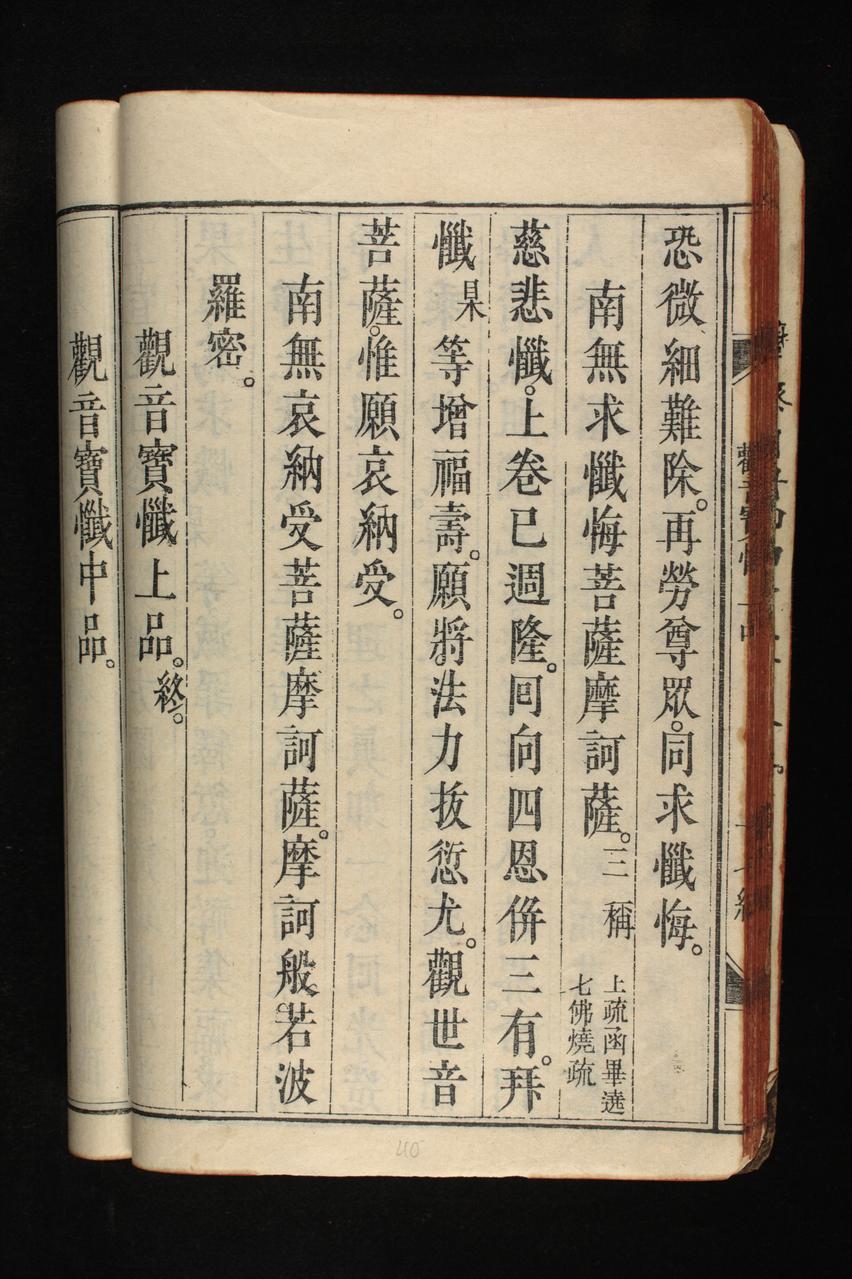 恐微細難除。再勞尊眾。同求懺悔。
南無求懺悔菩薩摩訶薩。三稱 上疏函畢遶七佛燒疏
慈悲懺。上卷已週隆。囘向四恩併三有。拜
懺某等增福壽。願將法力拔愆尤。觀世音
菩薩。惟願哀納受。
南無哀納受菩薩摩訶薩。摩訶般若波
羅密。
觀音寶懺上品。終。
觀音寶懺中品。